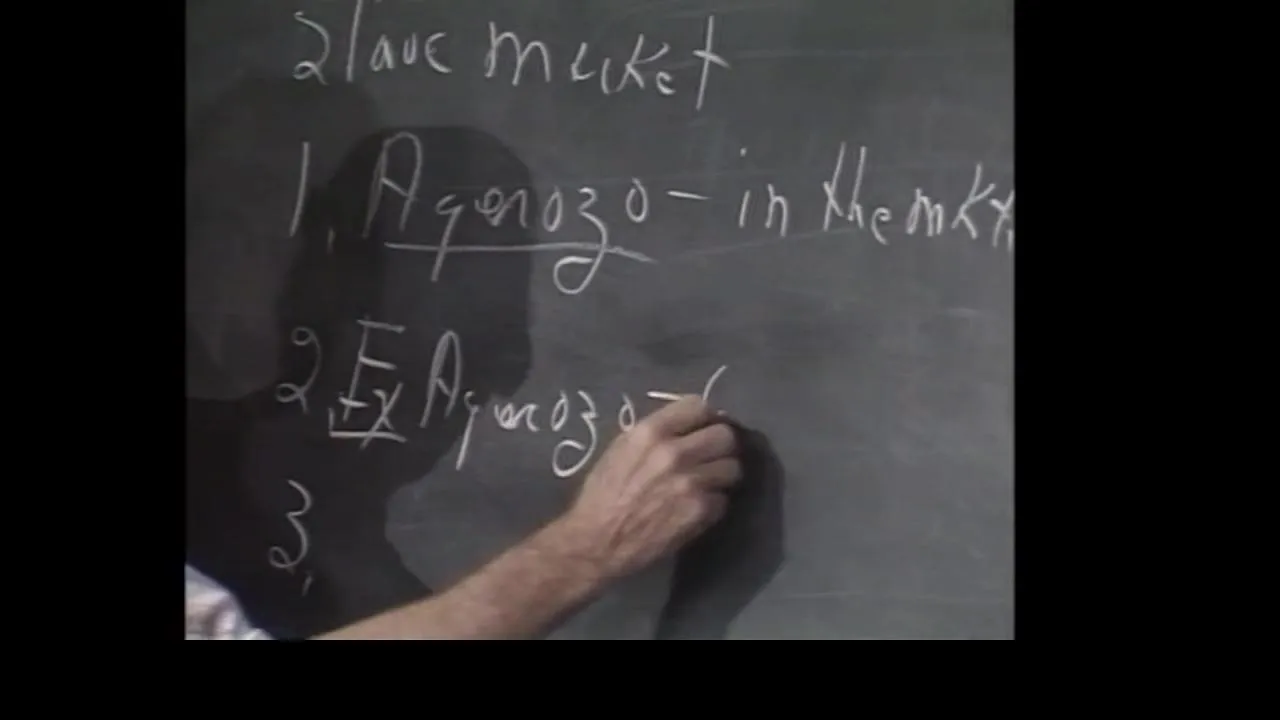 Slave market
1, Agorozo - in the mkt,
2, Ex Agorozo - (
3,